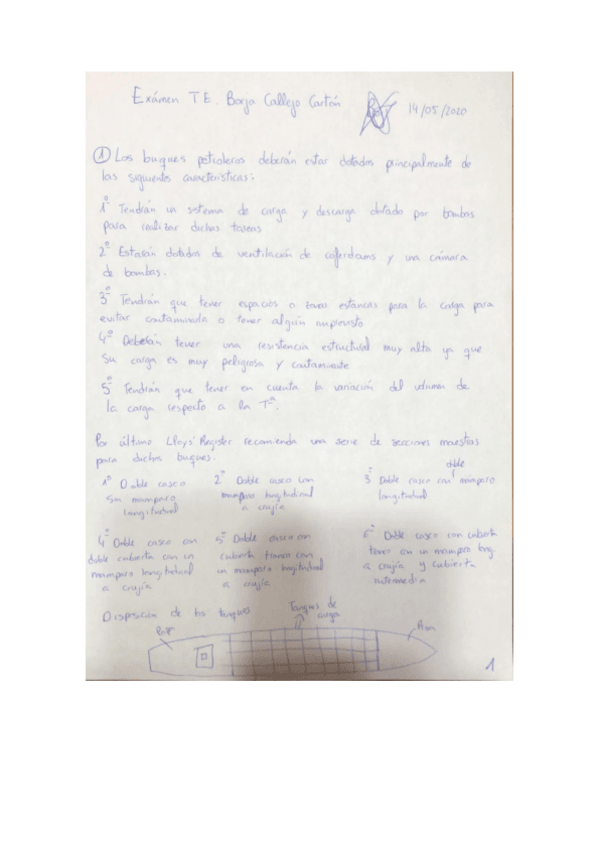 Exámen TE. Borja Callejo Cartón
14/05/2020
① Los buques petroleros deberán estar dotados principalmente de
las siguientes características:
1º Tendrán un sistema de carga y descarga dotado por bombas
para realizar dichas tareas
2º Estarán dotados de ventilación de coferdams y una cámara
de bombas.
3º Tendrán que tener espacios o zonas estancas para la carga para
evitar contaminarla o tener algún imprevisto
4º Deberán tener una resistencia estructural muy alta ya que
su carga es muy peligrosa y contaminante
5º Tendrán que tener en cuenta la variación del volumen de
la carga respecto a la Tª.
Por último Lloys' Register recomienda una serie de secciones maestras
para dichos buques.
1º Doble casco
sin mamparo
longitudinal
2º Doble casco con
mamparo longitudinal
a crujía
doble
3º Doble casco con mamparo
longitudinal
4º Doble casco con
doble cubierta con un
mamparo longitudinal
a crujía
5º Doble casco con
cubierta tronco con
un mamparo longitudinal
a crujía
6º Doble casco con cubierta
tronco con un mamparo long.
a crujía y cubierta
intermedia
Disposición de los tanques
Tanques de
carga
Popa
Proa
1